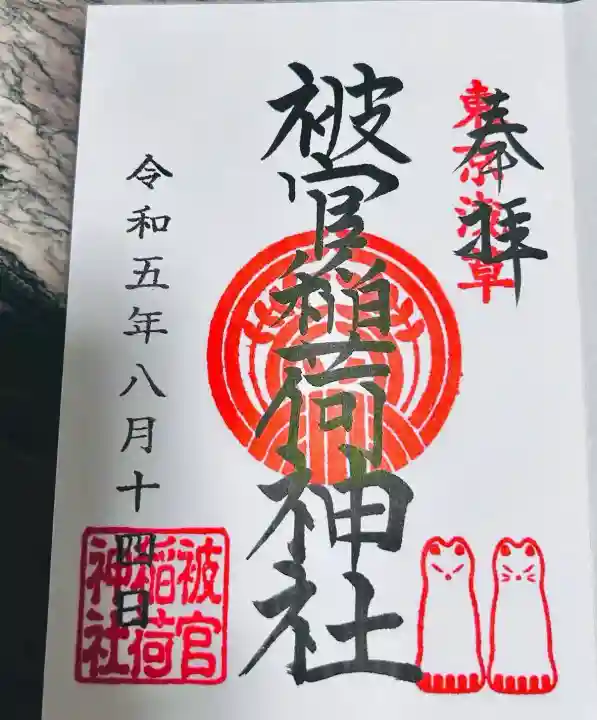 東京浅草
奉拝
被官稲荷神社
令和五年八月十四日
被官
稲荷
神社